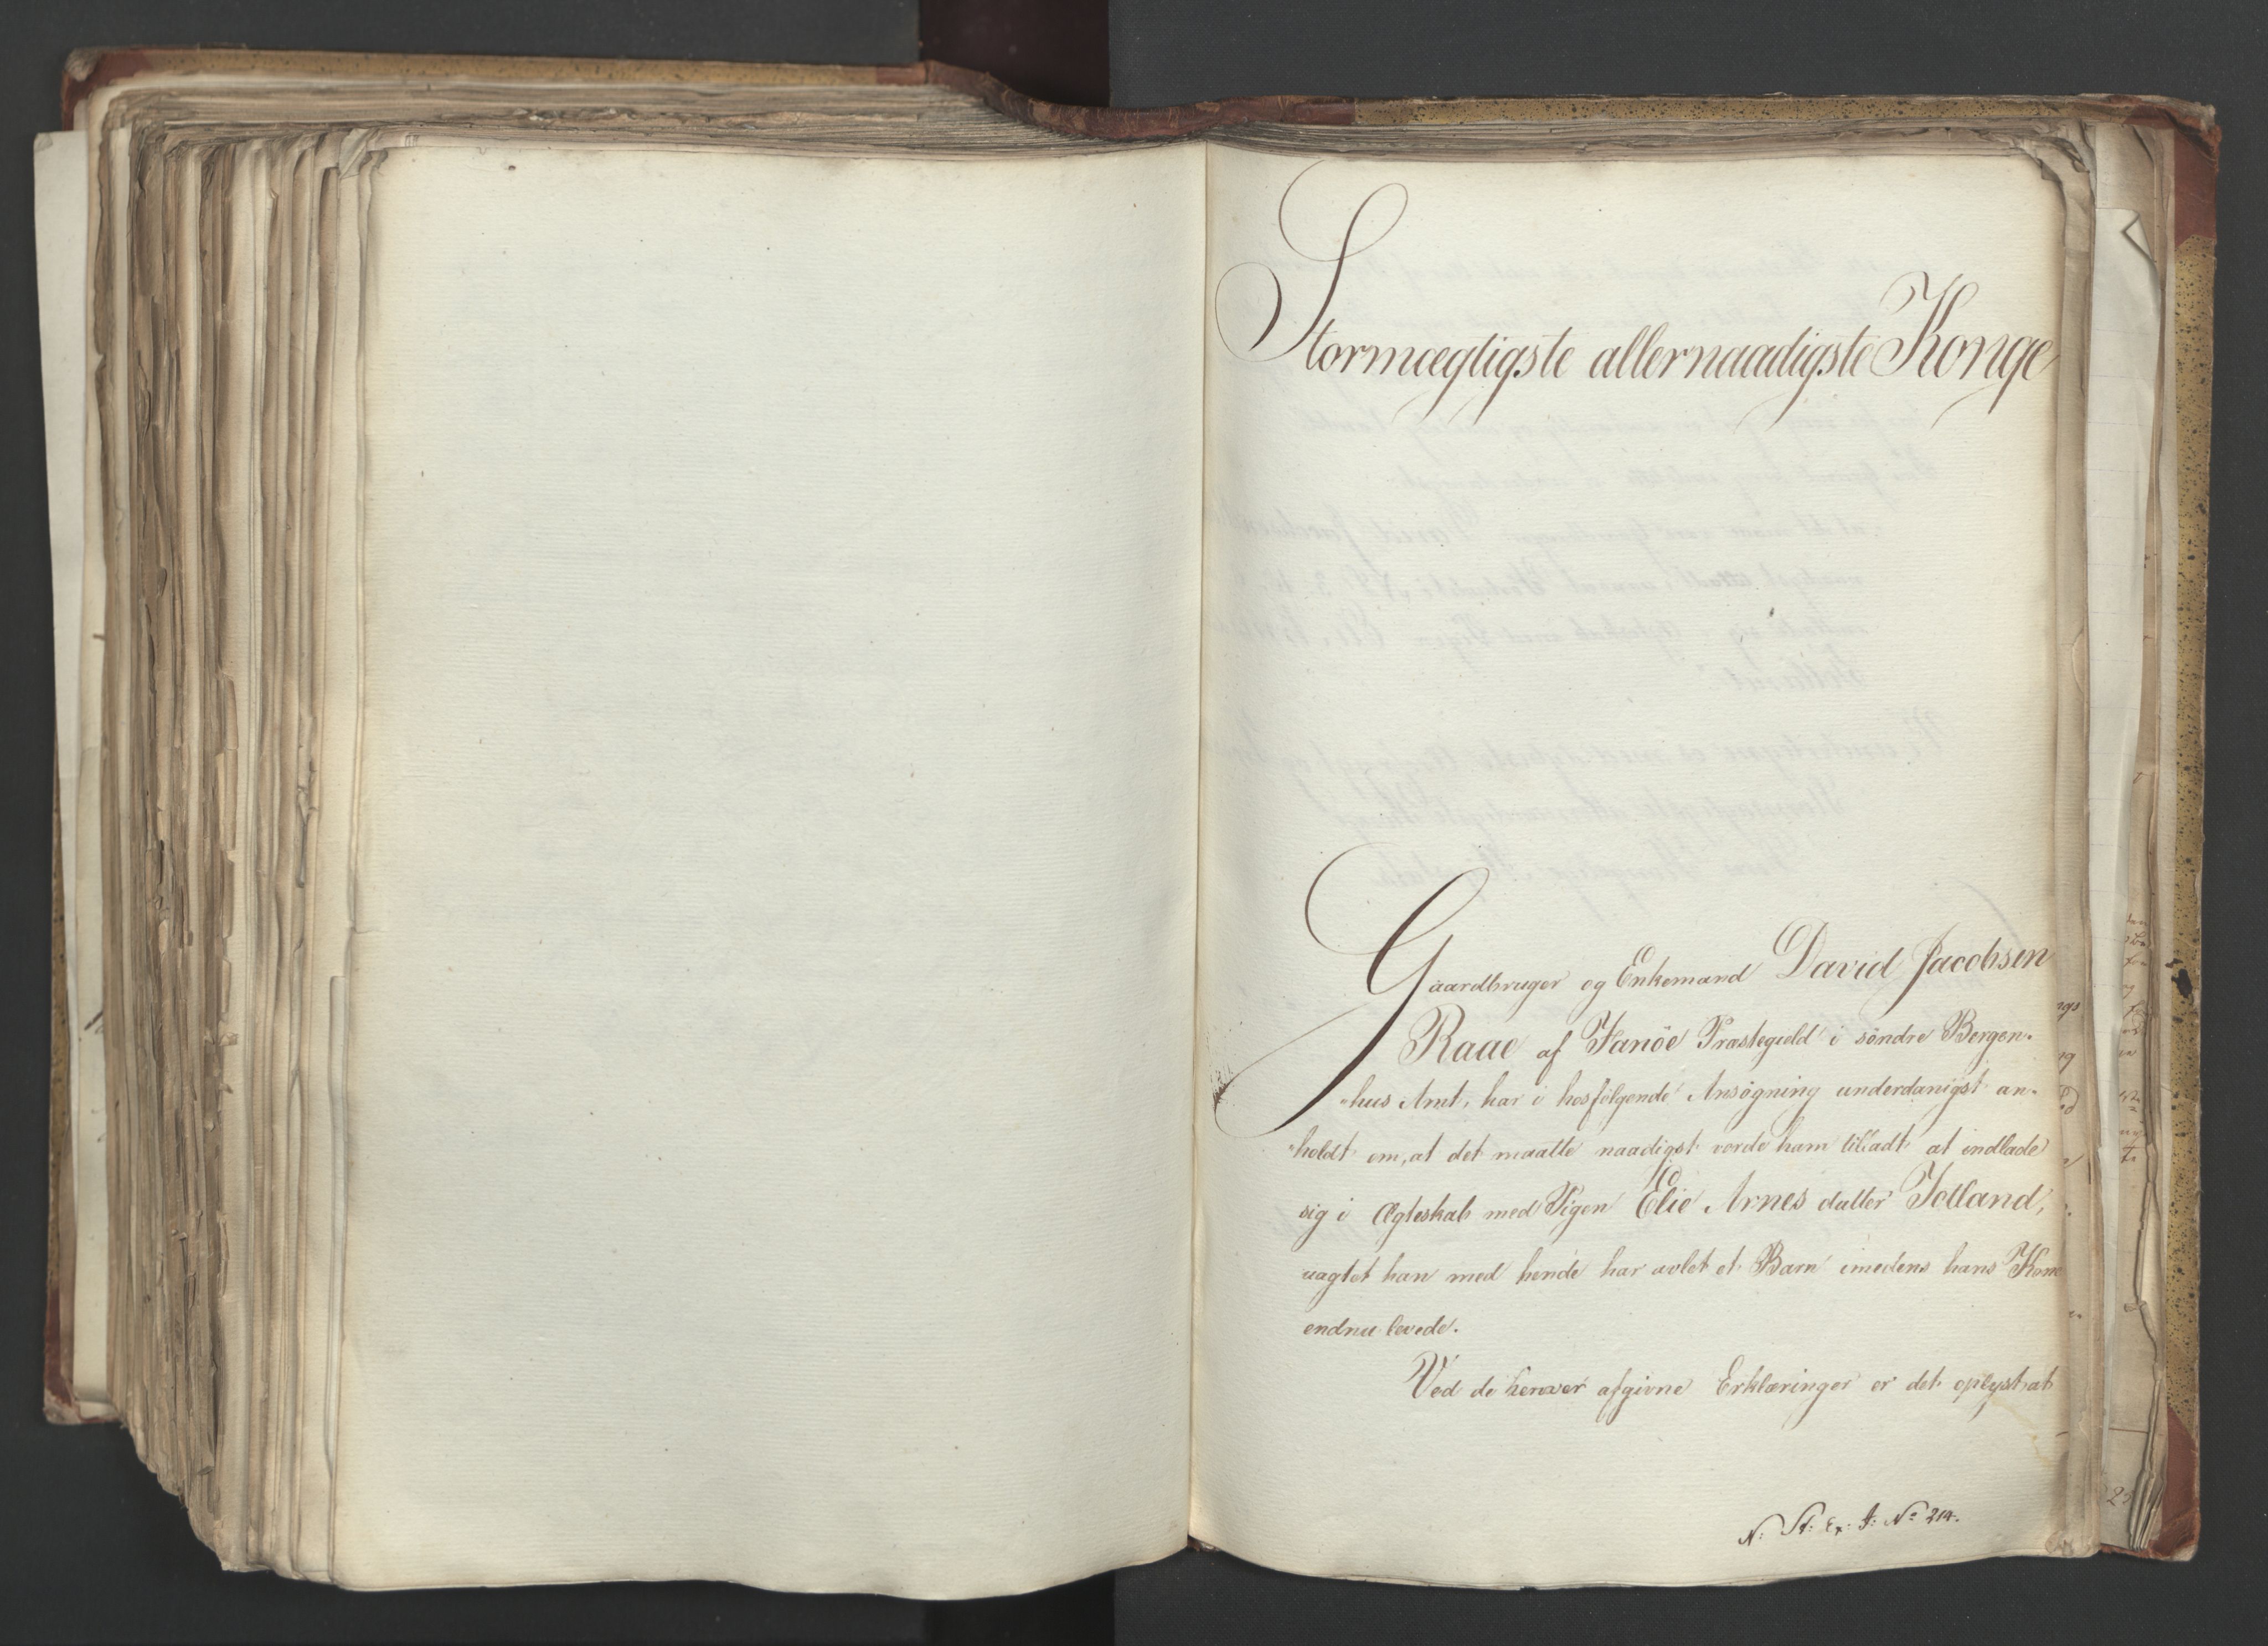 Stormægtigste allernaadigste Konge
Gaardbruger og Enkemand David Jacobsen
Raae af Fanöe Præstegield i söndre Bergen-
"hus Amt, har i hosfölgende Ansögning underdanigst an-
"holdt om, at det maatte naadigst vorde ham tilladt at indlade
sig i Ægteskab med Pigen Elie Arnes datter Totland,
uagtet han med hende har avlet et Barn imedens hans Kone
endnu levede.
Ved de herover afgivne Erklæringer er det oplyst, at
N: St: Ex: J: No 214.